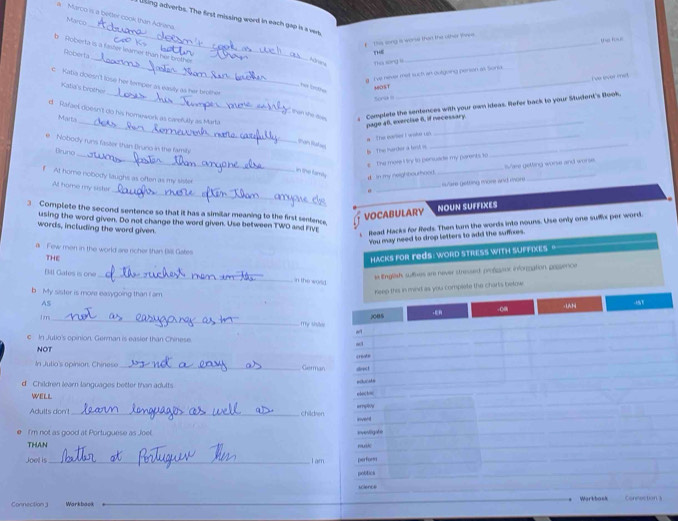 using adverbs. The first missing word in each gap is a verb.
a Marco is a better cook than Adriana.
Marco
Adriana
b Roberta is a faster learner than her brother.
Roberta learns faster than her brother
her brother
c Katia doesn't lose her temper as easily as her brother.
Katia's brother loses his temper more easily than she does.
d Rafael doesn't do his homework as carefully as Marta.
Marta does her homework more carefully than Rafael
e Nobody runs faster than Bruno in the family.
Bruno runs faster than anyone else in the family
f At home nobody laughs as often as my sister.
At home my sister laughs more often than anyone else
3 Complete the second sentence so that it has a similar meaning to the first sentence, using the word given. Do not change the word given. Use between TWO and FIVE words, including the word given.
a Few men in the world are richer than Bill Gates.
THE
Bill Gates is one of the richest men in the in the world
b My sister is more easygoing than I am.
AS
I'm not as easygoing as my sister
c In Julio's opinion, German is easier than Chinese.
NOT
In Julio's opinion, Chinese is not a easy as German
d Children learn languages better than adults.
WELL
Adults don't learn languages as well as children
e I'm not as good at Portuguese as Joel.
THAN
Joel is better at I am
Connection 3 Workbook
f This song is worse than the other three.
THE
This song is the four.
g I've never met such an outgoing person as Sonia.
MOST
Sonia is I've ever met.
4 Complete the sentences with your own ideas. Refer back to your Student's Book, page 46, exercise 6, if necessary.
a The earlier I wake up
b The harder a test is
c The more I try to persuade my parents to
d In my neighbourhood is/are getting worse and worse.
e is/are getting more and more
VOCABULARY NOUN SUFFIXES
1 Read Hacks for Reds. Then turn the words into nouns. Use only one suffix per word. You may need to drop letters to add the suffixes.
HACKS FOR reds: WORD STRESS WITH SUFFIXES
In English, suffixes are never stressed:
Keep this in mind as you complete the charts below.
JOBS -ER -OR -IAN -IST
art
act
create
direct
educate
electric
employ
invent
investigate
music
perform
politics
science
Workbook Connection 3